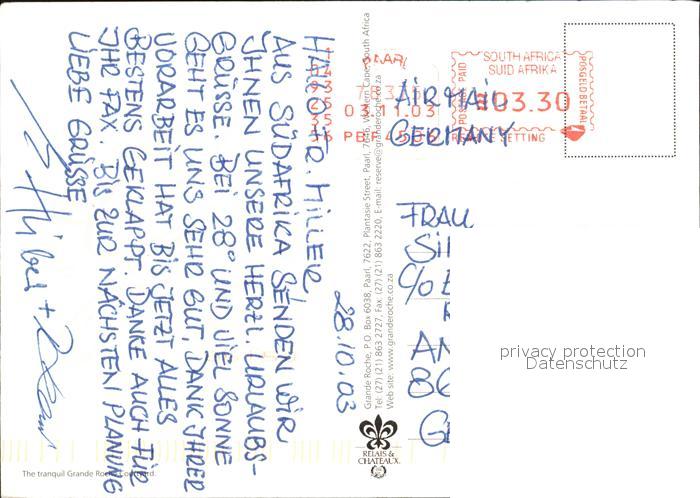 28.10.03
HALLO FR. MILLER
AUS SÜDAFRIKA SENDEN WIR
IHNEN UNSERE HERZL. URLAUBS-
GRÜSSE. BEI 28° UND VIEL SONNE
GEHT ES UNS SEHR GUT. DANK IHRER
VORARBEIT HAT BIS JETZT ALLES
BESTENS GEKLAPPT DANKE AUCH FÜR
IHR FAX. BIS ZUR NÄCHSTEN PLANUNG
LIEBE GRÜSSE
The tranquil Grande Roche Courtyard.
Grande Roche, P.O. Box 6038, Paarl, 7622, Plantasie Street, Paarl, 7646, Western Cape, South Africa
Tel: (27) (21) 863 2727, Fax: (27) (21) 863 2220, E-mail: reserve@granderoche.co.za
Web site: www.granderoche.co.za
RELAIS &
CHATEAUX.
PAARL
03.11.03
PBP
SOUTH AFRICA
SUID AFRIKA
POSTAGE PAID
03.30
POSGELD BETAAL
SETTING
AIRMAIL
GERMANY
FRAU
SI
C/O
AM
86
G
privacy protection
Datenschutz